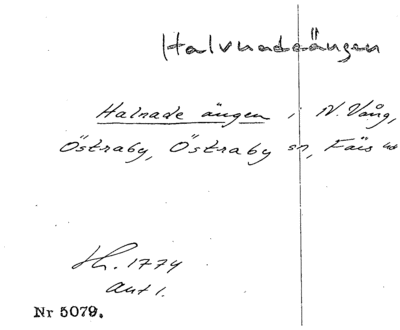 Halvnadeängen
Halnade ängen i N. Vång,
Östraby, Östraby sn, Färs hd
Sk. 1774
akt 1.
Nr 5079.